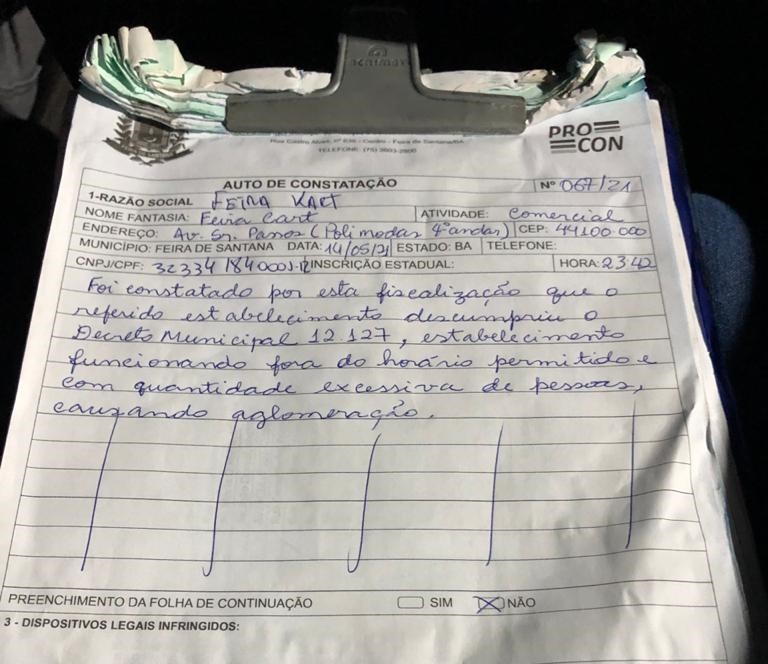 Rua Castro Alves, nº 635 - Centro - Feira de Santana/BA
TELEFONE: (75) 3603-2800
PRO
CON
AUTO DE CONSTATAÇÃO Nº 067/21
1-RAZÃO SOCIAL FEIRA KART
NOME FANTASIA: Feira Cart ATIVIDADE: Comercial
ENDEREÇO: Av. Sr. Passos (Polimodas 4º andar) CEP: 44100.000
MUNICÍPIO: FEIRA DE SANTANA DATA: 14/05/21 ESTADO: BA TELEFONE:
CNPJ/CPF: INSCRIÇÃO ESTADUAL: HORA: 23:42
Foi constatado por esta fiscalização que o
referido estabelecimento descumpriu o
Decreto Municipal 12.127, estabelecimento
funcionando fora do horário permitido e
com quantidade excessiva de pessoas,
cauzando aglomeração.
PREENCHIMENTO DA FOLHA DE CONTINUAÇÃO SIM NÃO
3 - DISPOSITIVOS LEGAIS INFRINGIDOS: